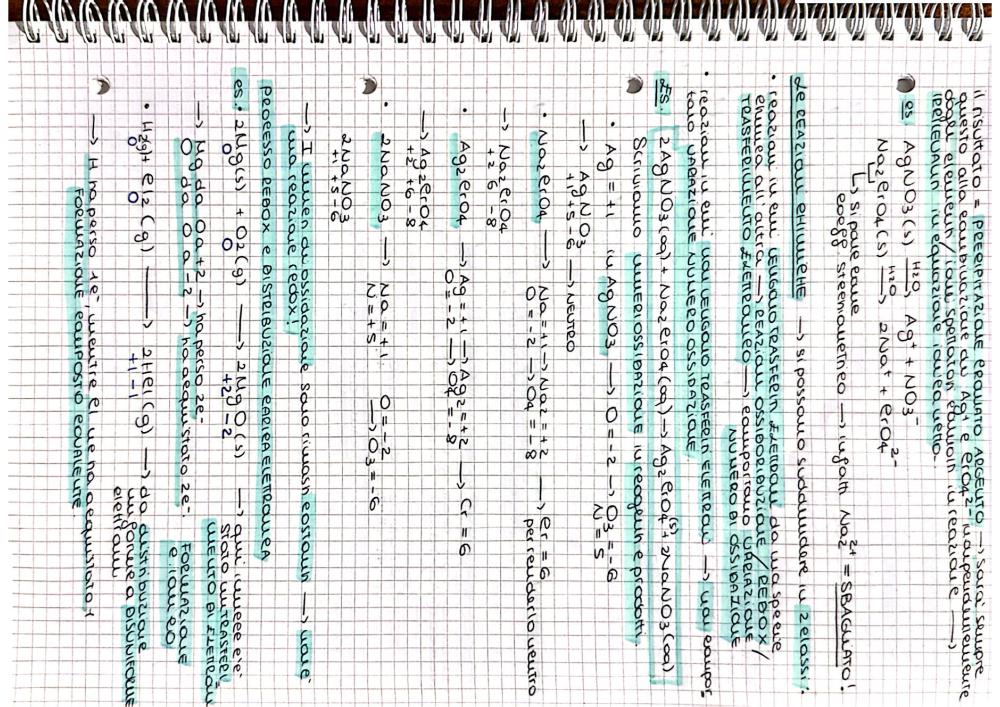 il risultato = PRECIPITAZIONE CROMATO ARGENTO → sarà sempre
questo alla combinazione di Ag⁺ e CrO4²⁻ indipendentemente
dagli elementi/ioni spettatori coinvolti in reazione →
IRRILEVANTI in equazione ionica netta.
es. AgNO3(s) H2O→ Ag⁺ + NO3⁻
Na2CrO4(s) H2O→ 2Na⁺ + CrO4²⁻
↳ si pone come
coeff. stechiometrico → infatti Na2²⁺ = SBAGLIATO!
LE REAZIONI CHIMICHE → si possono suddividere in 2 classi:
• reazioni in cui VENGONO TRASFERITI ELETTRONI da una specie
chimica all'altra → REAZIONI OSSIDORIDUZIONE / REDOX /
TRASFERIMENTO ELETTRONICO → comportano VARIAZIONE
NUMERO DI OSSIDAZIONE
• reazioni in cui non VENGONO TRASFERITI ELETTRONI → non compor=
tano VARIAZIONE NUMERO OSSIDAZIONE.
ES. 2AgNO3(aq) + Na2CrO4(aq) → Ag2CrO4(s) + 2NaNO3(aq)
Scriviamo NUMERI OSSIDAZIONE in reagenti e prodotti.
• Ag = +1 in AgNO3 → O = -2 → O3 = -6
N = 5
→ AgNO3 → NEUTRO
+1 +5 -6
• Na2CrO4 → Na = +1 → Na2 = +2 → Cr = 6
O = -2 → O4 = -8 per renderlo neutro
→ Na2CrO4
+2 6 -8
• Ag2CrO4 → Ag = +1 → Ag2 = +2 → Cr = 6
O = -2 → O4 = -8
→ Ag2CrO4
+2 +6 -8
• 2NaNO3 → Na = +1 O = -2
N = +5 → O3 = -6
2NaNO3
+1 +5 -6
→ I numeri di ossidazione sono rimasti costanti → non è
una reazione redox!
PROCESSO REDOX E DISTRIBUZIONE CARICA ELETTRONICA
es. • 2Mg(s) + O2(g) → 2MgO(s) → qui invece c'è
0 0 +2 -2 stato un TRASFERI=
MENTO DI ELETTRONI
→ Mg da 0 a +2 → ha perso 2e⁻
O da 0 a -2 → ha acquistato 2e⁻. FORMAZIONE
C. IONICO
• H2(g) + Cl2(g) → 2HCl(g) → da distribuzione
0 0 +1 -1 uniforme a DISUNIFORME
elettroni
→ H ha perso 1e⁻, mentre Cl ne ha acquistato 1
FORMAZIONE COMPOSTO COVALENTE